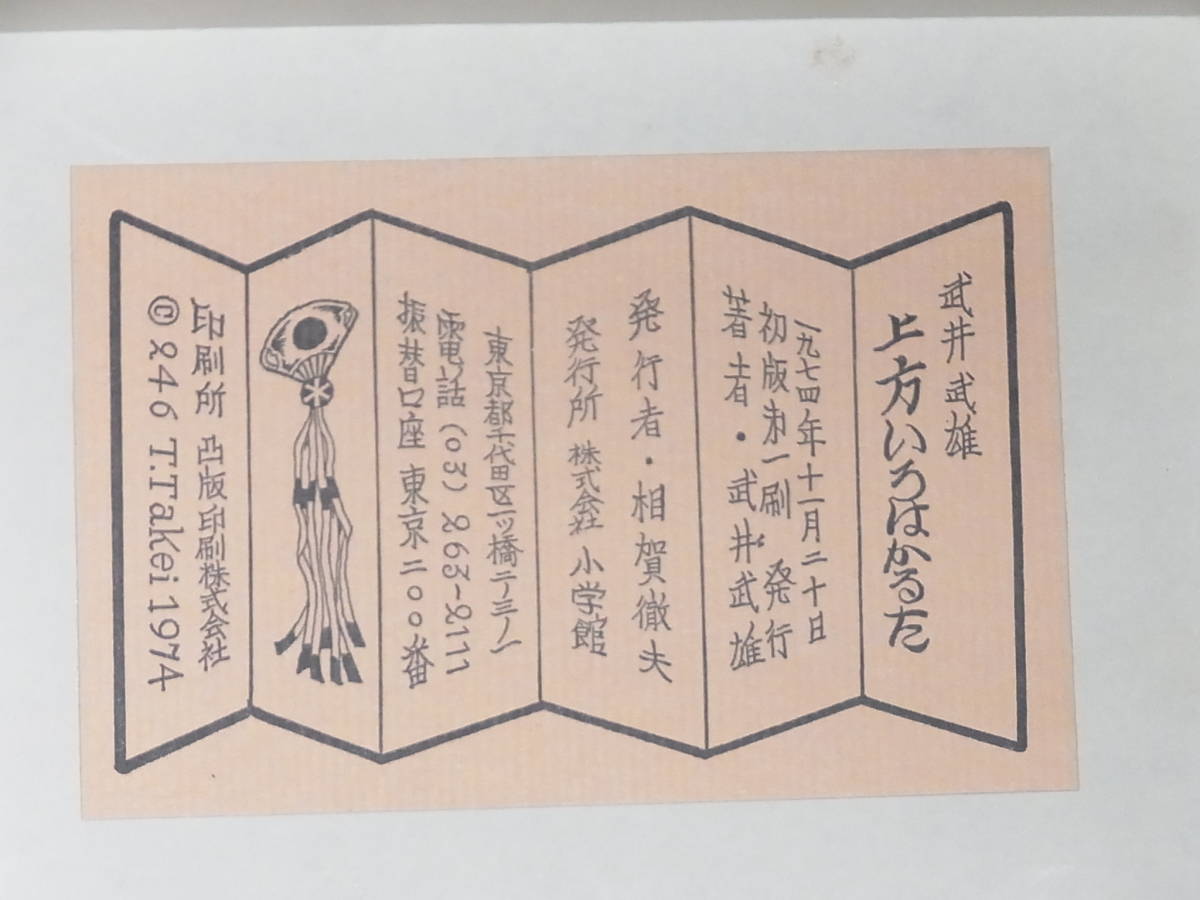 武井武雄
上方いろはかるた
一九七四年十一月二十日
初版才一刷 発行
著者・武井武雄
発行者・相賀徹夫
発行所 株式会社 小学館
東京都千代田区一ッ橋二ノ三ノ一
電話(03)263-2111
振替口座 東京二〇〇番
印刷所 凸版印刷株式会社
© 246 T.Takei 1974